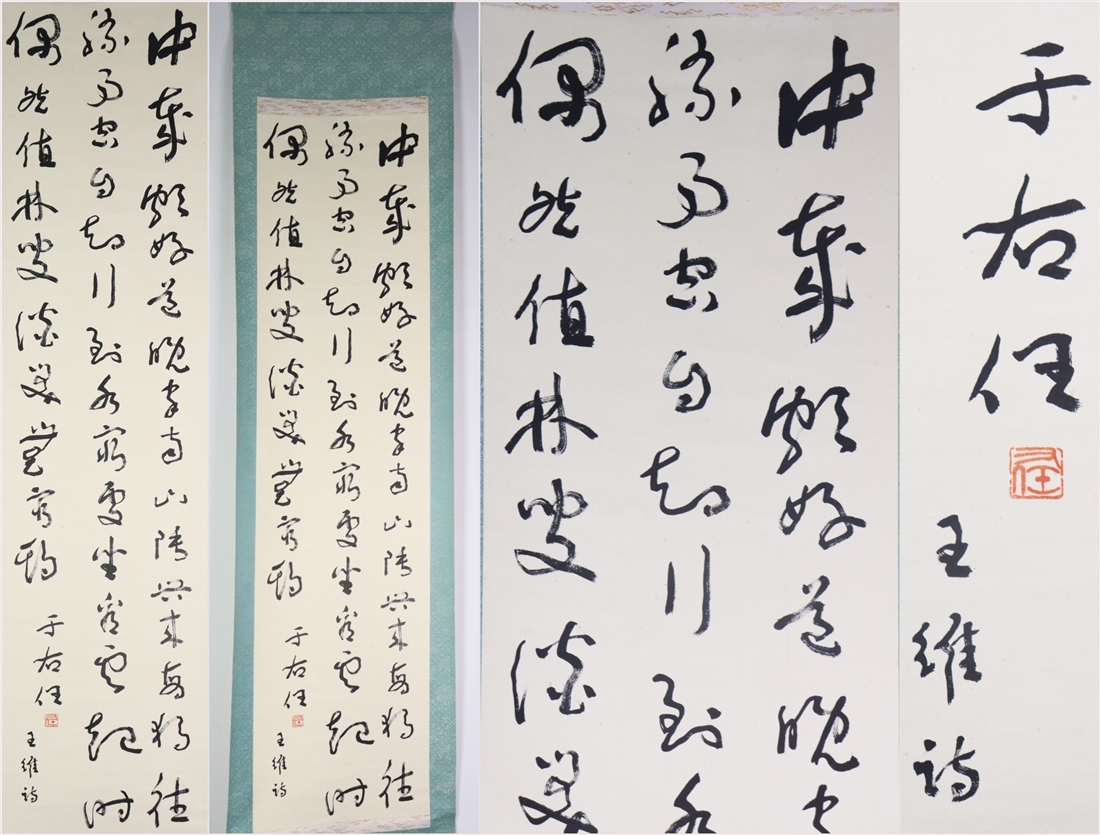 中歲頗好道晚家南山陲興來每獨往
勝事空自知行到水窮處坐看雲起時
偶然值林叟談笑無還期
于右任
王維詩
中歲頗好道晚家南山陲興來每獨往
勝事空自知行到水窮處坐看雲起時
偶然值林叟談笑無還期
于右任
王維詩
中歲頗好道晚
勝事空自知行到水
偶然值林叟談笑
于右任
右任
王維詩